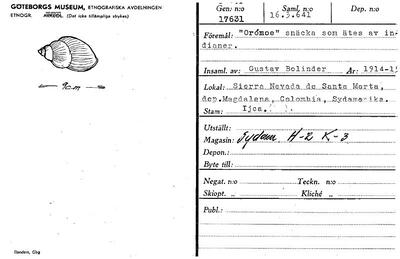 GÖTEBORGS MUSEUM, ETNOGRAFISKA AVDELNINGEN
ETNOGR. (Det icke tillämpliga strykes)
9 cm
Elanders, Gbg
Gen: n:o Saml. n:o Dep. n:o
17631 16.5.641
Föremål: "Ordmoe" snäcka som ätes av in-
dianer.
Insaml. av: Gustav Bolinder År: 1914-15
Lokal: Sierra Nevada de Santa Marta,
dep.Magdalena, Colombia, Sydamerika.
Stam: Ijca.
Utställt:
Magasin: Sydam H-2 K-3
Depon.:
Byte till:
Negat. n:o Teckn. n:o
Skiopt. „ Kliché „
Publ.: